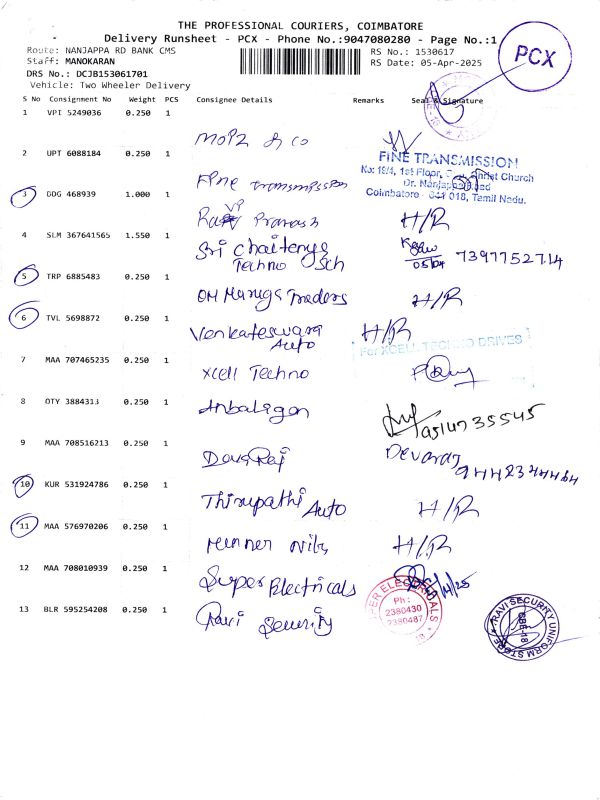 THE PROFESSIONAL COURIERS, COIMBATORE
Delivery Runsheet - PCX - Phone No.:9047080280 - Page No.:1
Route: NANJAPPA RD BANK CMS
RS No.: 1530617
PCX
Staff: MANOKARAN
RS Date: 05-Apr-2025
DRS No.: DCJB153061701
Vehicle: Two Wheeler Delivery
S No Consignment No Weight PCS Consignee Details Remarks Seal & Signature
1 VPI 5249036 0.250 1
2 UPT 6088184 0.250 1
FINE TRANSMISSION
1st Floor, Christ Church
Dr. Nanjappa Road
Coimbatore - 641 018, Tamil Nadu.
3 DDG 468939 1.000 1 Fine Transmission
H/R
4 SLM 367641565 1.550 1 Sri Chaitenya
Techno Sch
05/04 7397752714
5 TRP 6885483 0.250 1 Traders H/R
6 TVL 5698872 0.250 1 Venkateswara
Auto
H/R
For XCELL TECHNO DRIVES
7 MAA 707465235 0.250 1 Xcell Techno
8 OTY 3884313 0.250 1 Anbalagan
9 MAA 708516213 0.250 1 Devaraj
10 KUR 531924786 0.250 1 Thirupathi Auto H/R
11 MAA 576970206 0.250 1 H/R
12 MAA 708010939 0.250 1 Super Electricals
SUPER ELECTRICALS
Ph:
2380430
2380487
13 BLR 595254208 0.250 1 Ravi Security
RAVI SECURITY UNIFORM STORE
CBE-18